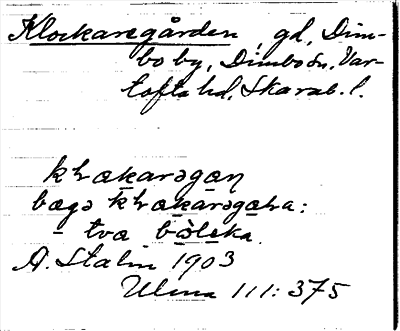 Klockaregården, gd, Dim-
bo by, Dimbo sn, Var-
tofta hd, Skarab. l.
kɫækarəgæn
bægə kɫækarəgæɫna:
två bölika
A. Stalin 1903
Ulma 111:375